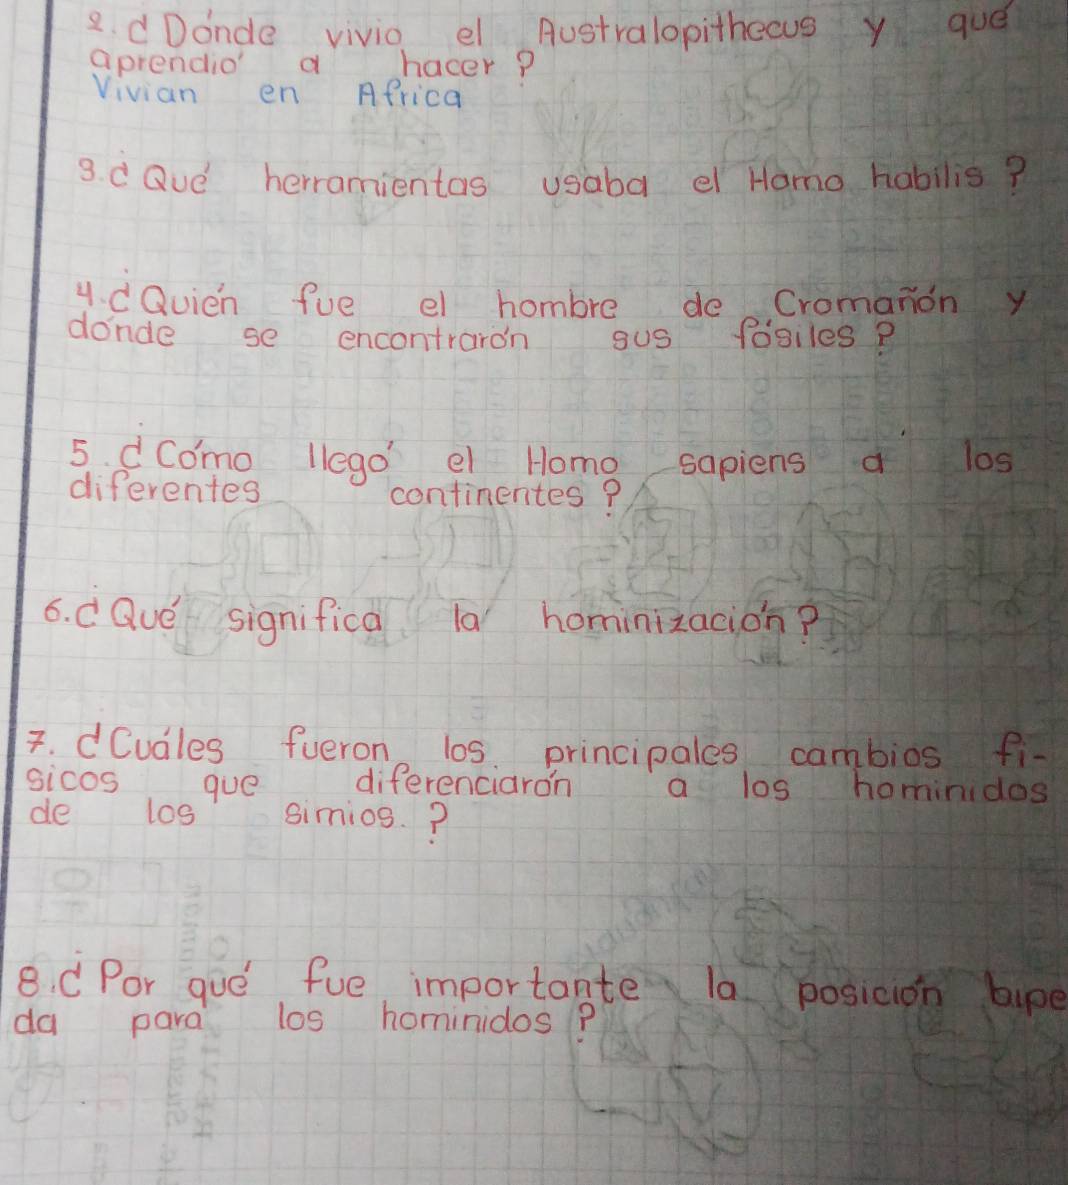 2. ¿Dónde vivio el Australopithecus y qué
aprendio' a hacer?
Vivian en Africa
3. ¿Qué herramientas usaba el Homo habilis?
4. ¿Quién fue el hombre de Cromañón y
dónde se encontrarón sus fósiles?
5. ¿Cómo llegó el Homo sapiens a los
diferentes continentes?
6. ¿Qué significa la hominización?
7. ¿Cuáles fueron los principales cambios fi-
sicos que diferenciarón a los hominidos
de los simios.?
8. ¿Por qué fue importante la posición bipe
da para los hominidos?